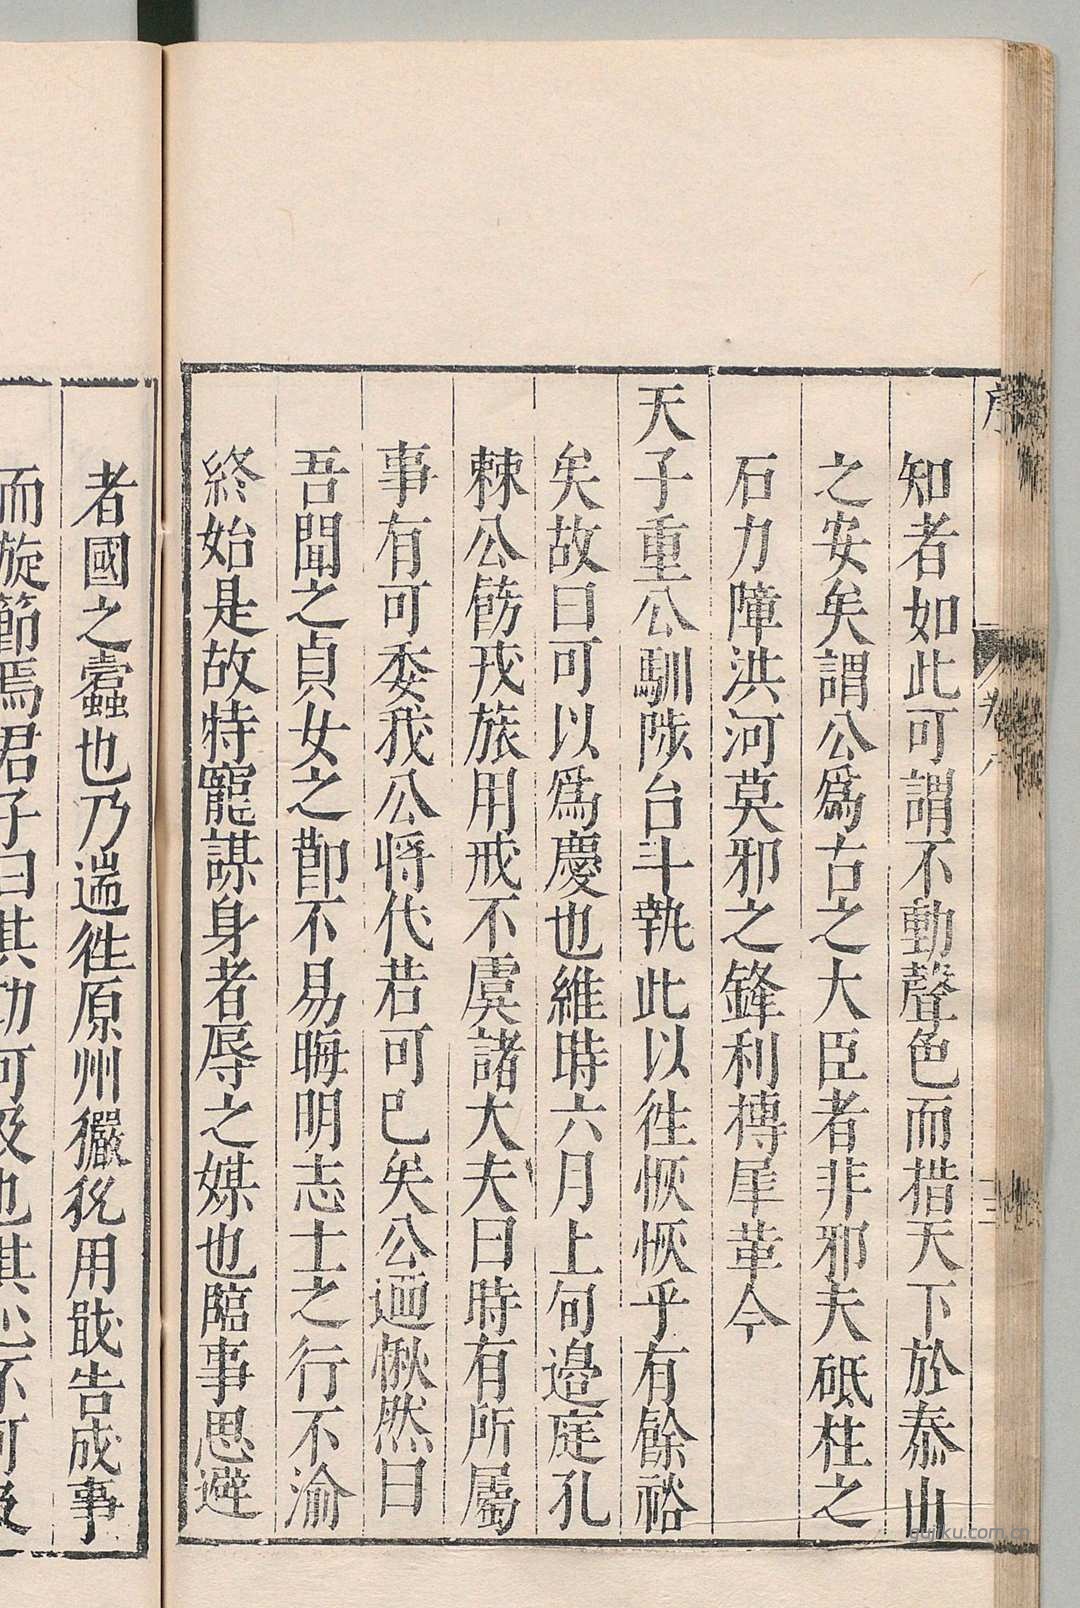 序
卷六
知者如此可謂不動聲色而措天下於泰山
之安矣謂公爲古之大臣者非邪夫砥柱之
石力障洪河莫邪之鋒利摶犀革今
天子重公馴陟台斗執此以徃恢恢乎有餘裕
矣故曰可以爲慶也維時六月上旬邉庭孔
棘公飭戎旅用戒不虞諸大夫曰時有所屬
事有可委我公將代若可已矣公逌愀然曰
吾聞之貞女之節不易晦明志士之行不渝
終始是故特寵謀身者辱之媒也臨事思避
者國之蠹也乃遄徃原州玁狁用戢告成事
而旋節焉君子曰其功可及也其心不可及
gujiku.com.cn